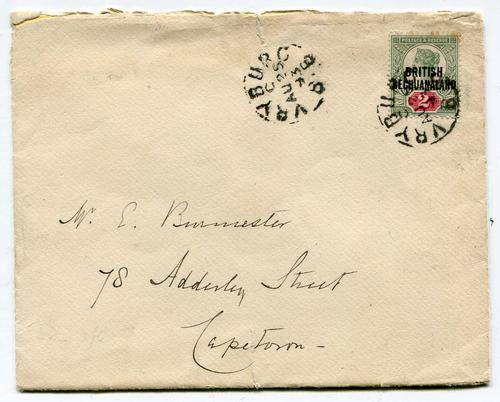 VRYBURG
C
AU 25
93
B.B.
POSTAGE & REVENUE
BRITISH
BECHUANALAND
2d
VRYBUR
Mr. E. Burmester
78 Adderley Street
Capetown -